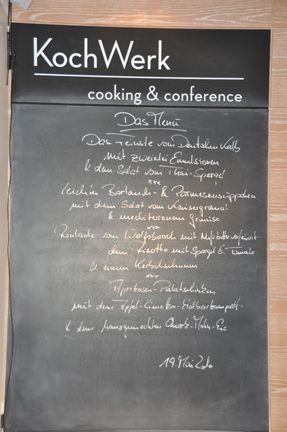 KochWerk
cooking & conference
Das Menü
Das Feinste vom Kalb
mit zweierlei Emulsionen
& dem Salat vom Thai-Spargel
***
& Parmesansüppchen
mit dem Salat vom Kaisergranat
& mediterranem Gemüse
***
Roulade vom Wolfsbarsch mit
dem Risotto mit Spargel & Tomate
& einem
***
Aprikosen-Palatschinken
mit dem Apfel-Limetten-
& dem hausgemachten Quark-Mohn-Eis
19. Mai 2010